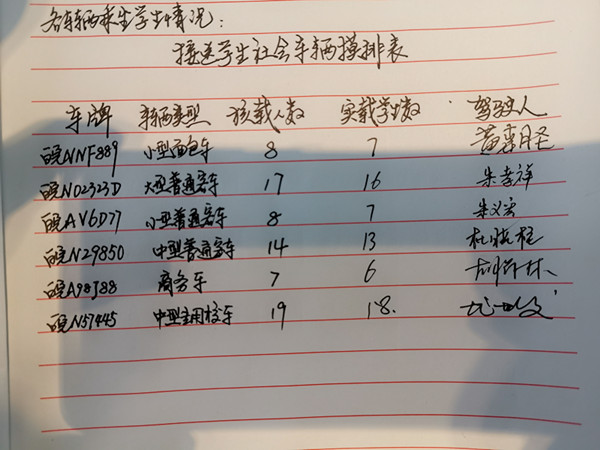 各车辆乘坐学生情况:
接送学生社会车辆摸排表
车牌 车辆类型 核载人数 实载学生数 驾驶人
皖NNF889 小型面包车 8 7
皖N02323D 大型普通客车 17 16 朱孝祥
皖AV6D77 小型普通客车 8 7 朱义宏
皖N29850 中型普通客车 14 13
皖A98J88 商务车 7 6
皖N57445 中型专用校车 19 18.